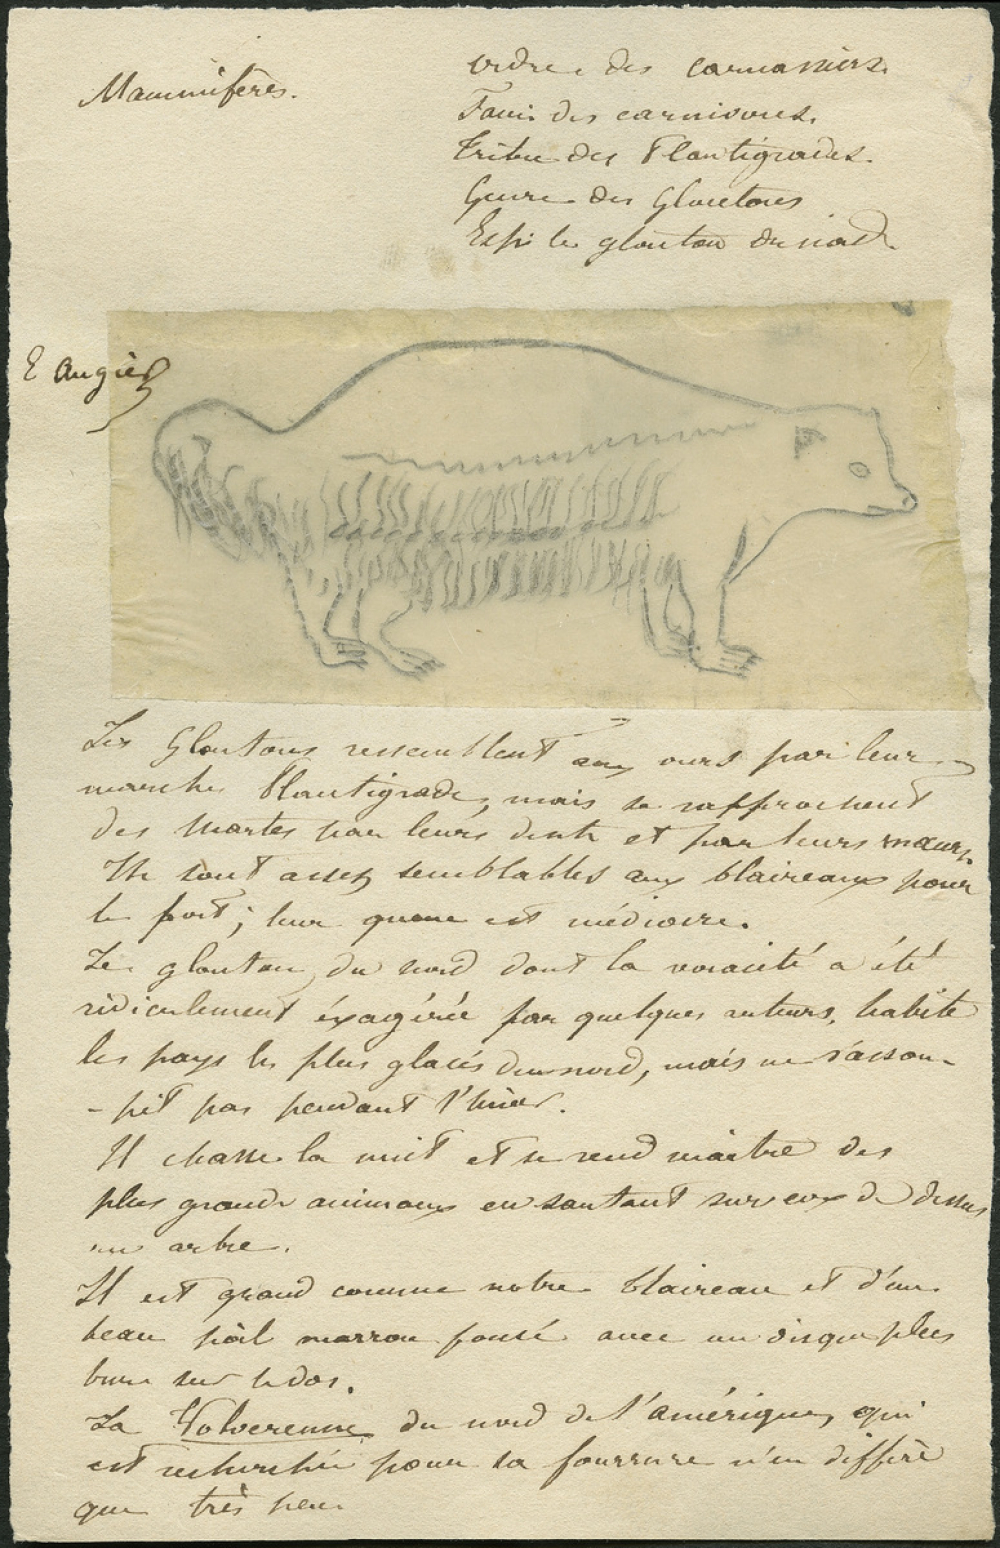 Mammifères.
ordre des carnassiers.
Fam. des carnivores.
Tribu des Plantigrades.
Genre des Gloutons
Esp. le glouton du nord.
E Augier
Les Gloutons ressemblent aux ours par leur
marche Plantigrade, mais se rapprochent
des Martes par leurs dents et par leurs mœurs.
Ils sont assez semblables aux blaireaux pour
le port; leur queue est médiocre.
Le glouton du nord dont la voracité a été
ridiculement éxagérée par quelques auteurs, habite
les pays les plus glacés du nord, mais ne s'assou-
-pit pas pendant l'hiver.
Il chasse la nuit et se rend maître des
plus grands animaux en sautant sur eux de dessus
un arbre.
Il est grand comme notre blaireau et d'un
beau poil marron foncé avec un disque plus
brun sur le dos.
La Volverenne du nord de l'amérique, qui
est recherchée pour sa fourrure n'en diffère
que très peu